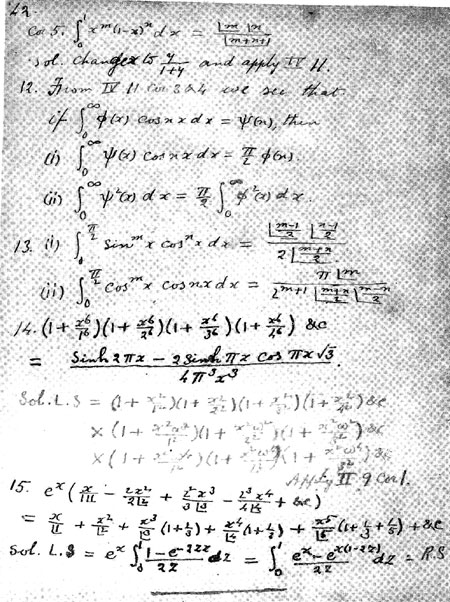 42.
Cor 5. ∫₀¹ x^m (1-x)^n dx = |m |n / |m+n+1
Sol. Change x to y/(1+y) and apply IV 11.
12. From IV 11 cor 3 & 4 we see that
if ∫₀^∞ φ(x) cos nx dx = ψ(n), then
(i) ∫₀^∞ ψ(x) cos nx dx = π/2 φ(n).
(ii) ∫₀^∞ ψ²(x) dx = π/2 ∫₀^∞ φ²(x) dx.
13. (i) ∫₀^{π/2} sin^m x cos^n x dx = |(m-1)/2 |(n-1)/2 / 2 |(m+n)/2
(ii) ∫₀^{π/2} cos^m x cos nx dx = π |m / 2^{m+1} |(m+n)/2 |(m-n)/2
14. (1 + x⁶/1⁶)(1 + x⁶/2⁶)(1 + x⁶/3⁶)(1 + x⁶/4⁶) &c
= (Sinh 2πx - 2 Sinh πx cos πx√3) / 4π³x³.
Sol. L.S = (1 + x²/1²)(1 + x²/2²)(1 + x²/3²)(1 + x²/4²) &c
× (1 + x²ω²/1²)(1 + x²ω²/2²)(1 + x²ω²/3²) &c
× (1 + x²ω⁴/1²)(1 + x²ω⁴/2²)(1 + x²ω⁴/3²) &c
Apply II 9 Cor 1.
15. e^x (x/1|1 - 2x²/2|2 + 2²x³/3|3 - 2³x⁴/4|4 + &c)
= x/|1 + x²/|2 + x³/|3 (1+1/3) + x⁴/|4 (1+1/3) + x⁵/|5 (1+1/3+1/5) + &c
Sol. L.S = e^x ∫₀¹ (1-e^{-2xz})/2z dz = ∫₀¹ (e^x - e^{x(1-2z)})/2z dz = R.S